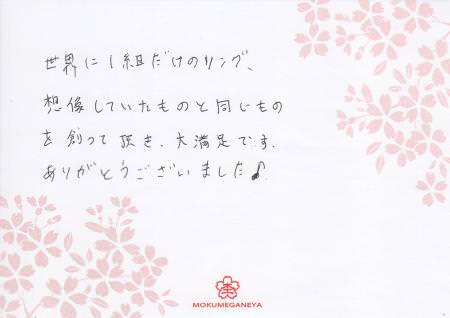 世界に1組だけのリング、
想像していたものと同じもの
を創って頂き、大満足です.
ありがとうございました♪
MOKUMEGANEYA